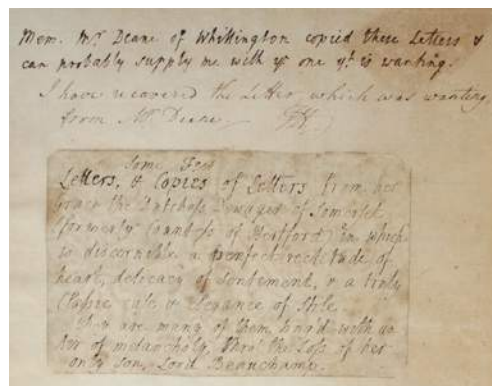 Mem. Mr Deane of Whittington copied these Letters &
can probably supply me with ye one yt is wanting.
I have recovered the Letter, which was wanting,
from Mr Deane.
Some Few
Letters, & Copies of Letters from her
Grace the Dutchess Dowager of Somerset
(formerly Countess of Hertford) in which
is discernible a perfect rectitude of
heart, delicacy of sentiment, & a truly
Classic ease & elegance of Stile.
They are many of them, with an
Air of melancholy, thro' the Loss of her
only son, Lord Beauchamp.